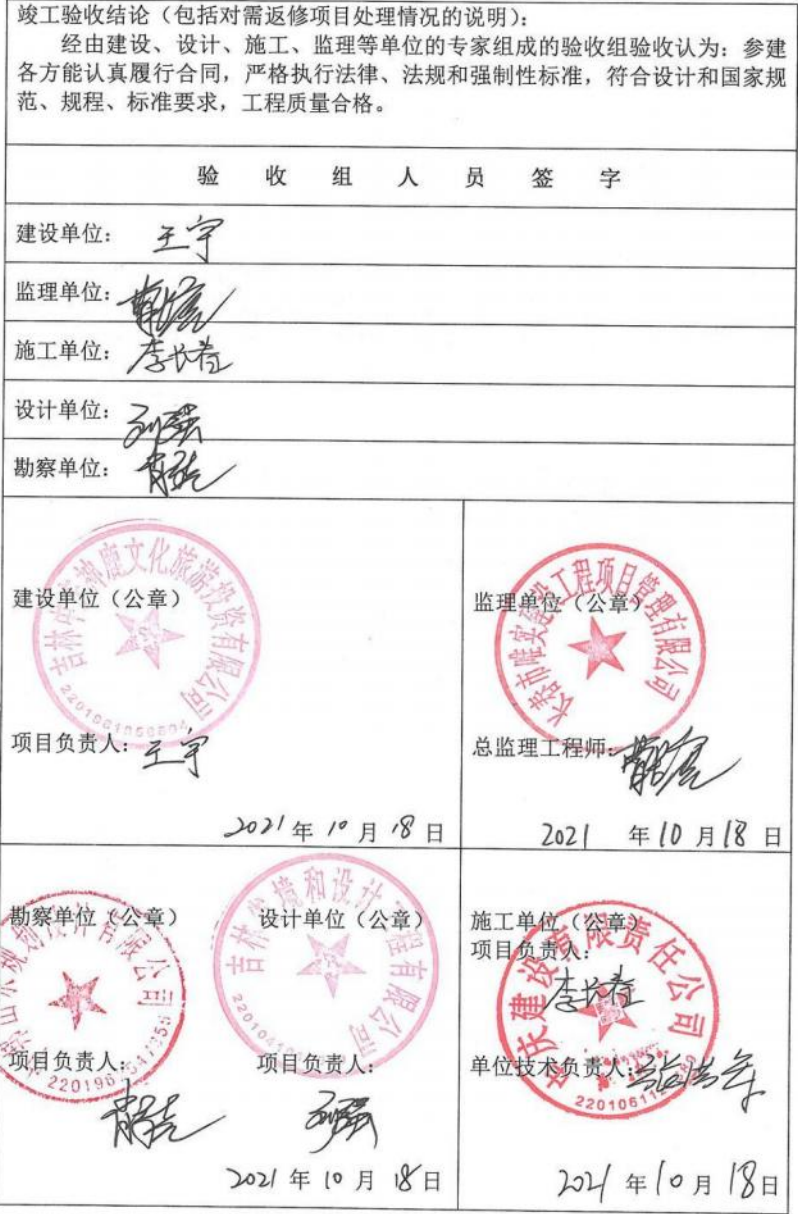 竣工验收结论（包括对需返修项目处理情况的说明）：
经由建设、设计、施工、监理等单位的专家组成的验收组验收认为：参建
各方能认真履行合同，严格执行法律、法规和强制性标准，符合设计和国家规
范、规程、标准要求，工程质量合格。
验收组人员签字
建设单位： 王宇
监理单位：
施工单位： 李长春
设计单位： 刘强
勘察单位：
建设单位（公章）
文化旅游投资有限公司
项目负责人： 王宇
2021 年 10 月 18 日
监理单位（公章）
长春市唯实建设工程项目管理有限公司
总监理工程师：
2021 年 10 月 18 日
勘察单位（公章）
项目负责人：
设计单位（公章）
境和设计工程有限公司
项目负责人： 刘强
2021 年 10 月 18 日
施工单位（公章）
建设有限责任公司
项目负责人：
李长春
单位技术负责人：
2021 年 10 月 18 日